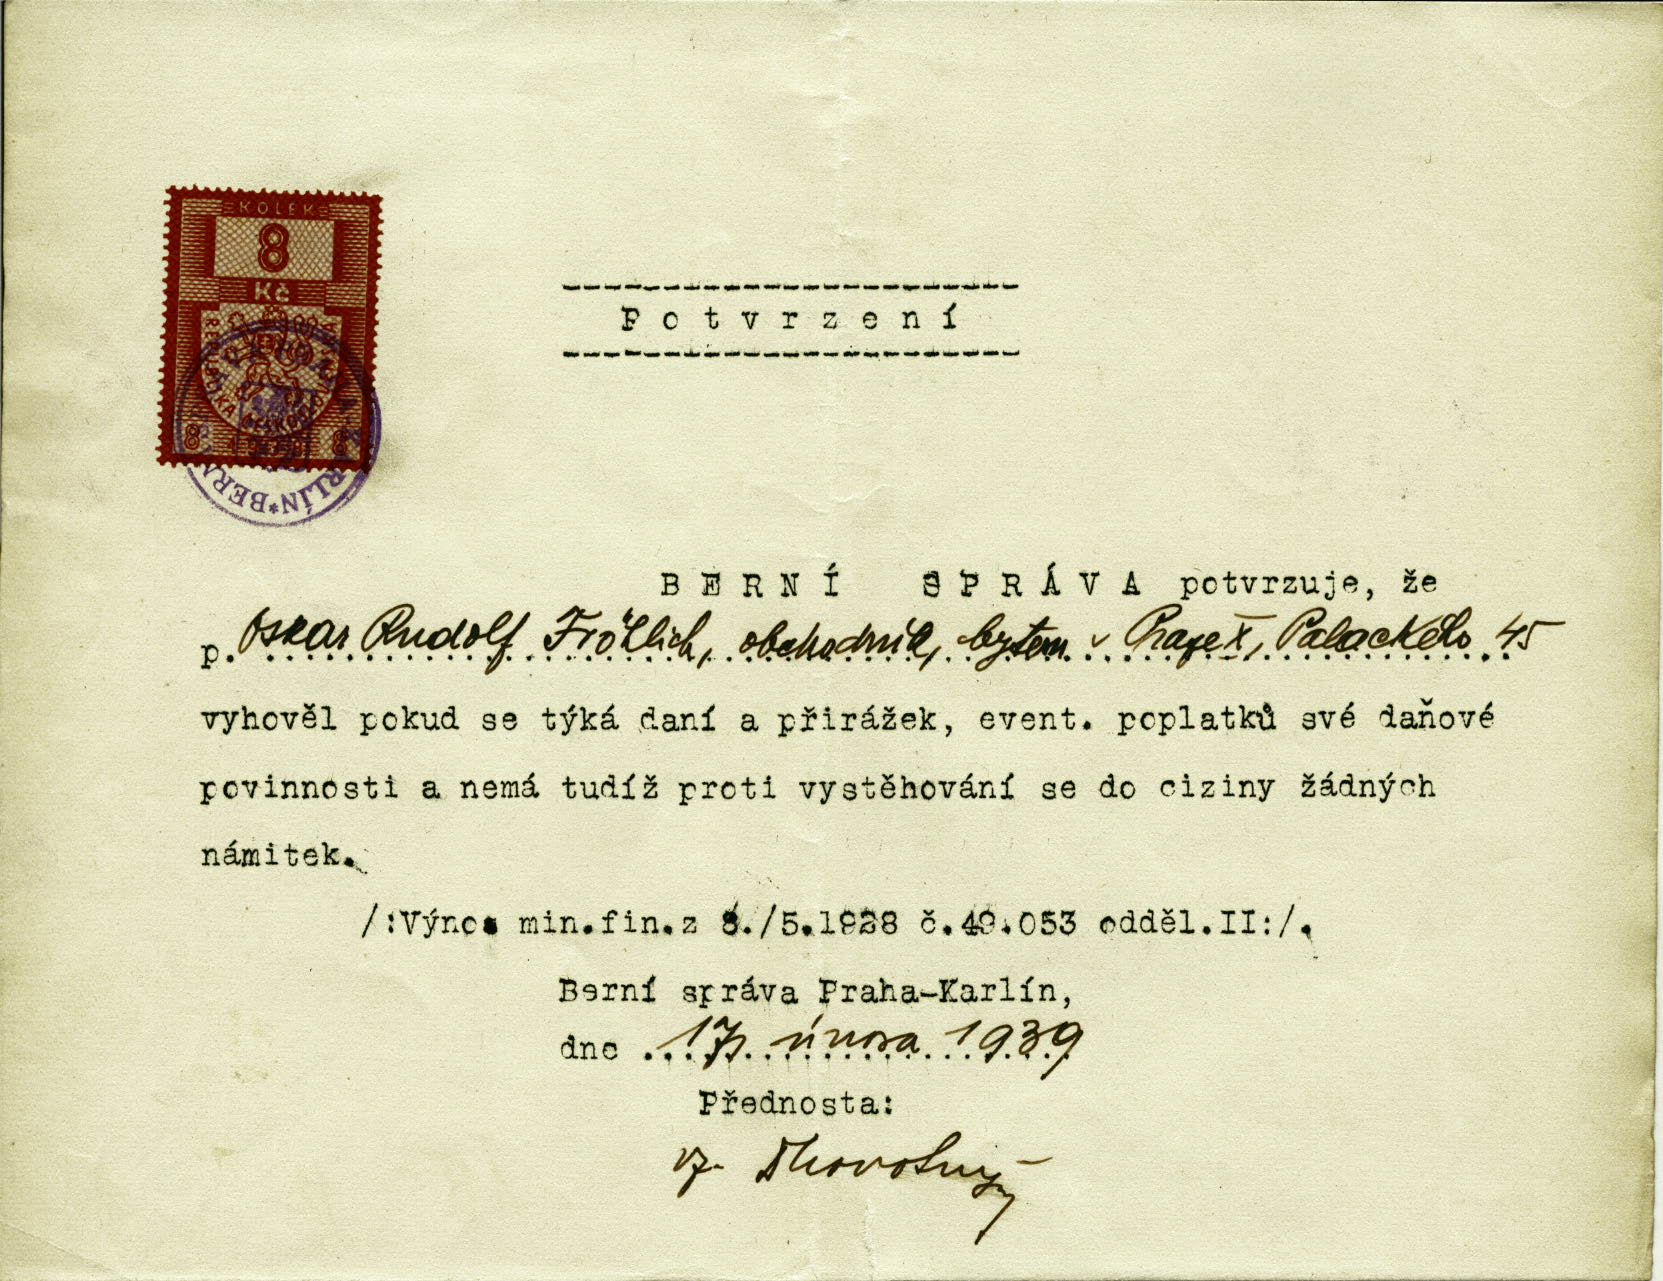 KOLEK
8
Kč
REPUBLIKA ČESKOSLOV
8 8
RLÍN*BERN
Potvrzení
BERNÍ SPRÁVA potvrzuje, že
p. Oskar Rudolf Fröhlich, obchodník, bytem v Praze X, Palackého 45
vyhověl pokud se týká daní a přirážek, event. poplatků své daňové
povinnosti a nemá tudíž proti vystěhování se do ciziny žádných
námitek.
/:Výnos min.fin.z 8./5.1928 č.49.053 odděl.II:/.
Berní správa Praha-Karlín,
dne 17. února 1939
Přednosta: